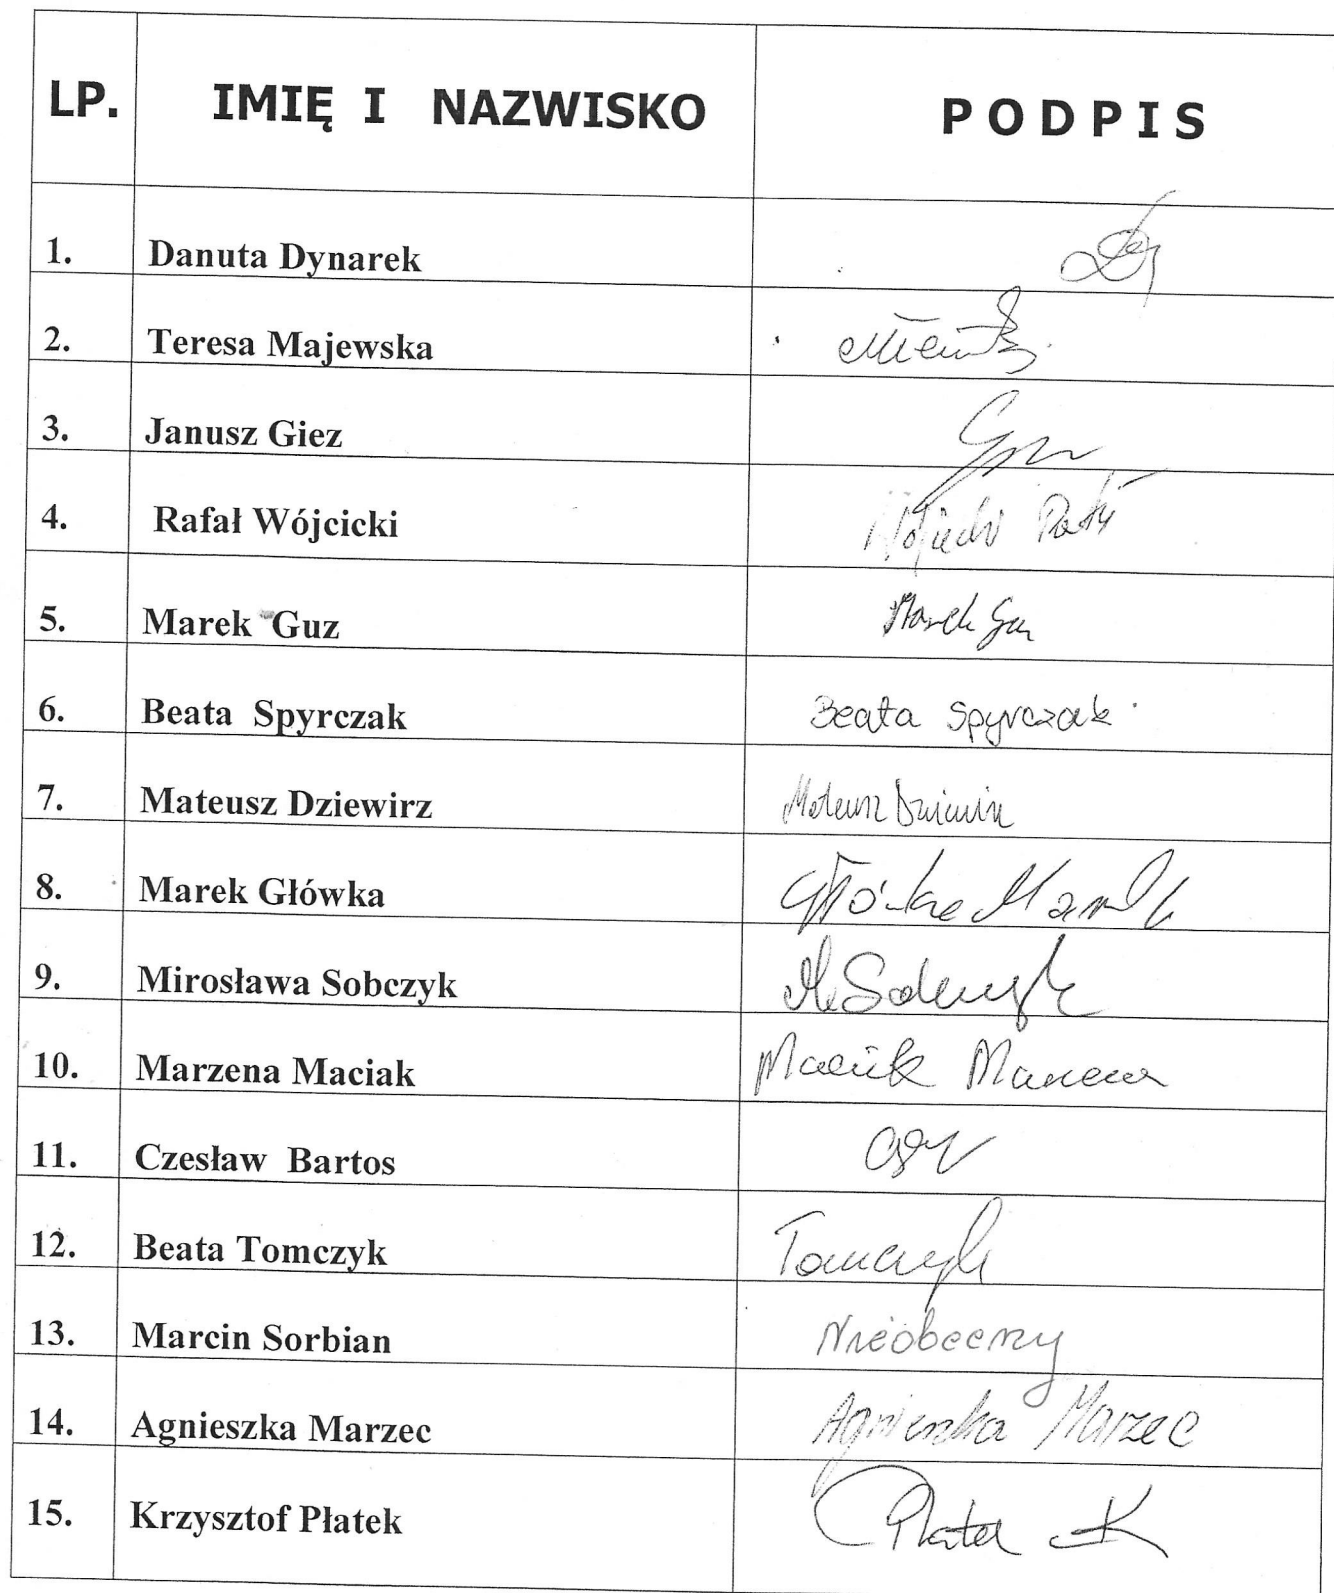 LP. IMIĘ I NAZWISKO PODPIS
1. Danuta Dynarek
2. Teresa Majewska
3. Janusz Giez
4. Rafał Wójcicki
5. Marek Guz Marek Guz
6. Beata Spyrczak Beata Spyrczak
7. Mateusz Dziewirz Mateusz Dziewirz
8. Marek Główka Główka Marek
9. Mirosława Sobczyk M Sobczyk
10. Marzena Maciak Maciak Marzena
11. Czesław Bartos
12. Beata Tomczyk Tomczyk
13. Marcin Sorbian Nieobecny
14. Agnieszka Marzec Agnieszka Marzec
15. Krzysztof Płatek Płatek K